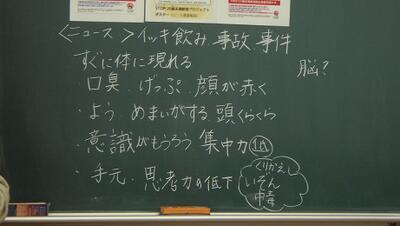 <ニュース>イッキ飲み、事故、事件
すぐに体に現れる
脳?
口臭、げっぷ、顔が赤く
・よう、めまいがする、頭くらくら
・意識がもうろう 集中力低
・手元、思考力の低下
くりかえし
いぞん
中毒